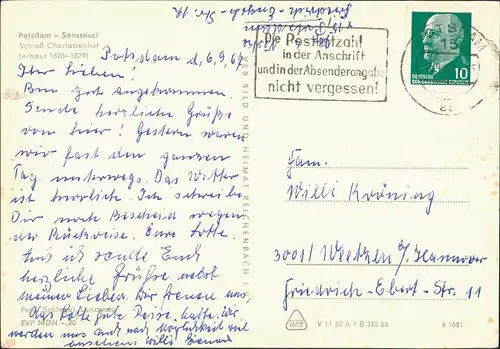 Potsdam – Sanssouci
Schloß Charlottenhof
(erbaut 1826–1829)
Potsdam d, 6, 9, 67
Ihr Lieben!
Bin gut angekommen
Sende herzliche Grüße
von hier! Gestern waren
wir fast den ganzen
Tag unterwegs. Das Wetter
ist herrlich. Ich schreibe
Dir noch Bescheid wegen
der Rückreise. Eure Lotte.
Auch ich sende Euch
herzliche Grüße nebst
meinen Lieben. Wir freuen uns,
das Lotte gute Reise hatte. Wir
werden uns auch nach Möglichkeit viel
ansehen. Willi
EVP MDN –,20
VEB BILD UND HEIMAT REICHENBACH I. V.
Die Postleitzahl
in der Anschrift
und in der Absenderangabe
nicht vergessen!
DEUTSCHE
DEMOKRATISCHE REPUBLIK
10
Fam.
Willi Kröning
3001/ Wetzen b/ Hannover
Friedrich-Ebert-Str. 11
V 11 50 A 1 B 340 66
4 1681